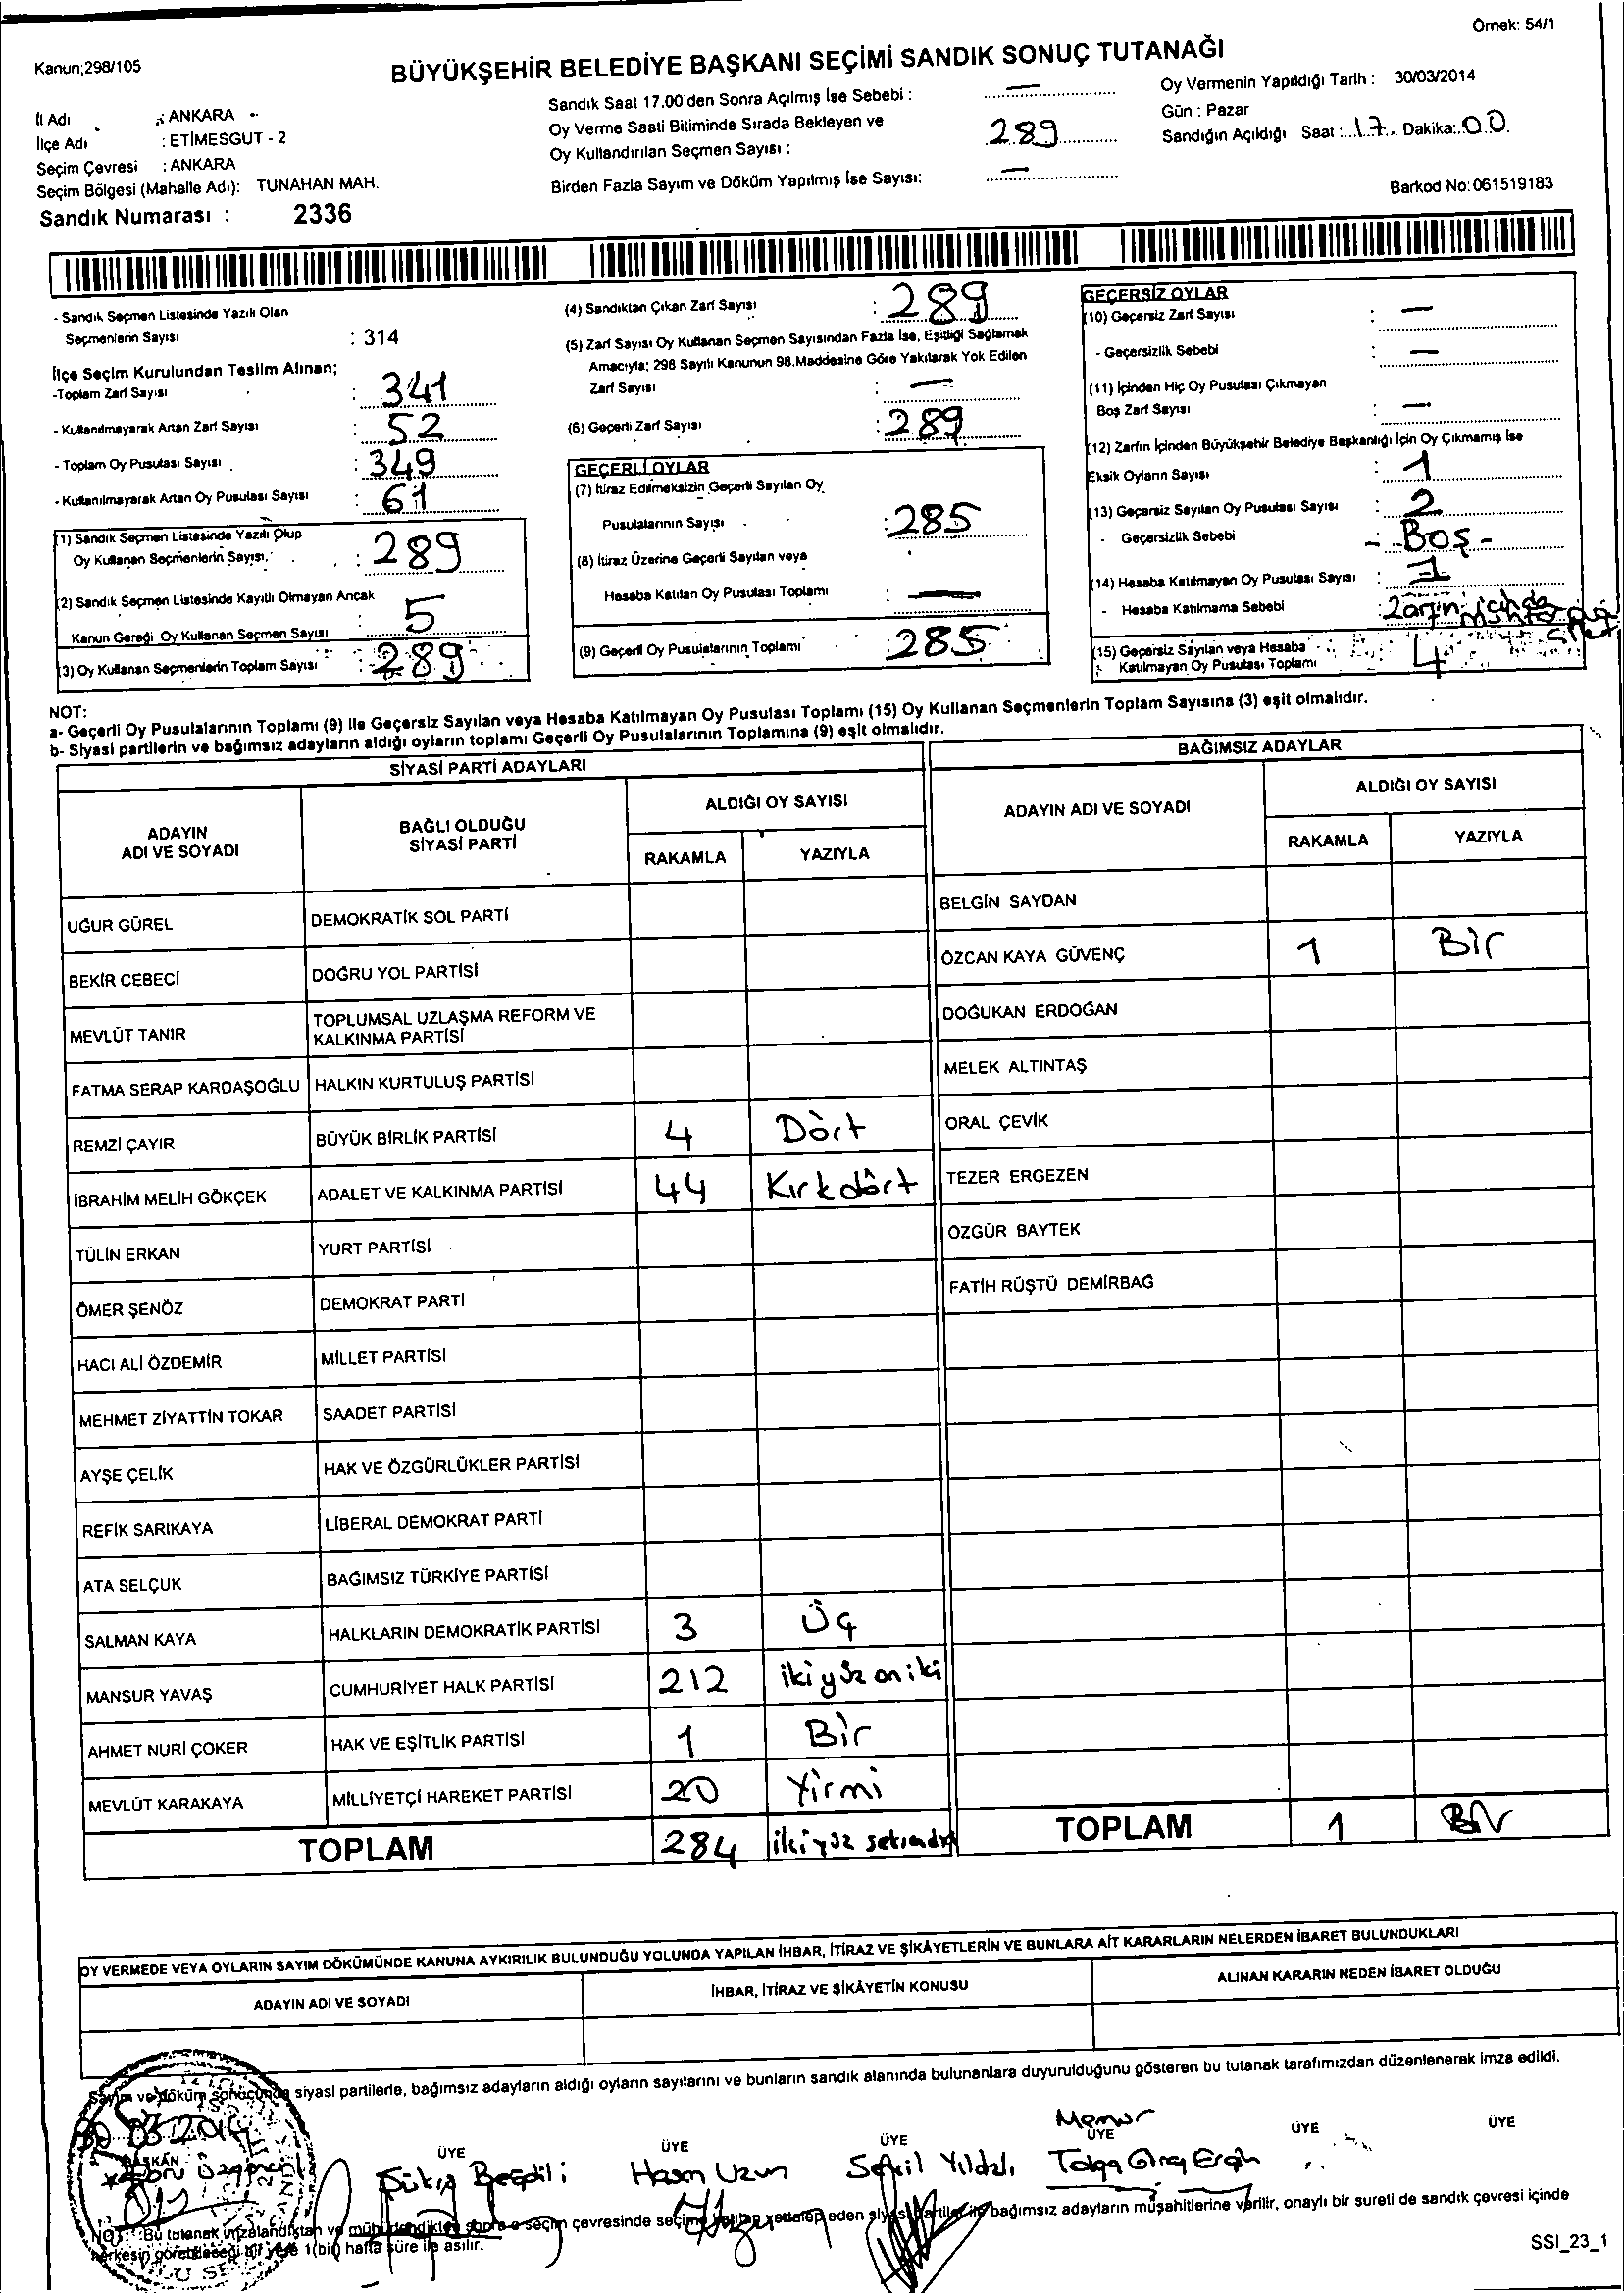 Örnek: 54/1
Kanun;298/105
BÜYÜKŞEHİR BELEDİYE BAŞKANI SEÇİMİ SANDIK SONUÇ TUTANAĞI
İl Adı : ANKARA
İlçe Adı : ETİMESGUT - 2
Seçim Çevresi : ANKARA
Seçim Bölgesi (Mahalle Adı): TUNAHAN MAH.
Sandık Numarası : 2336
Sandık Saat 17.00'den Sonra Açılmış İse Sebebi : —
Oy Verme Saati Bitiminde Sırada Bekleyen ve
Oy Kullandırılan Seçmen Sayısı : 289
Birden Fazla Sayım ve Döküm Yapılmış İse Sayısı: —
Oy Vermenin Yapıldığı Tarih : 30/03/2014
Gün : Pazar
Sandığın Açıldığı Saat : 17 Dakika: 00
Barkod No: 061519183
- Sandık Seçmen Listesinde Yazılı Olan
Seçmenlerin Sayısı : 314
İlçe Seçim Kurulundan Teslim Alınan;
-Toplam Zarf Sayısı : 341
- Kullanılmayarak Artan Zarf Sayısı : 52
- Toplam Oy Pusulası Sayısı : 349
- Kullanılmayarak Artan Oy Pusulası Sayısı : 61
(1) Sandık Seçmen Listesinde Yazılı Olup
Oy Kullanan Seçmenlerin Sayısı : 289
(2) Sandık Seçmen Listesinde Kayıtlı Olmayan Ancak
Kanun Gereği Oy Kullanan Seçmen Sayısı : 5
(3) Oy Kullanan Seçmenlerin Toplam Sayısı : 289
(4) Sandıktan Çıkan Zarf Sayısı : 289
(5) Zarf Sayısı Oy Kullanan Seçmen Sayısından Fazla İse, Eşitliği Sağlamak
Amacıyla; 298 Sayılı Kanunun 98.Maddesine Göre Yakılarak Yok Edilen
Zarf Sayısı : —
(6) Geçerli Zarf Sayısı : 289
GEÇERLİ OYLAR
(7) İtiraz Edilmeksizin Geçerli Sayılan Oy
Pusulalarının Sayısı : 285
(8) İtiraz Üzerine Geçerli Sayılan veya
Hesaba Katılan Oy Pusulası Toplamı : —
(9) Geçerli Oy Pusulalarının Toplamı : 285
GEÇERSİZ OYLAR
(10) Geçersiz Zarf Sayısı : —
- Geçersizlik Sebebi : —
(11) İçinden Hiç Oy Pusulası Çıkmayan
Boş Zarf Sayısı : —
(12) Zarfın İçinden Büyükşehir Belediye Başkanlığı İçin Oy Çıkmamış İse
Eksik Oyların Sayısı : 1
(13) Geçersiz Sayılan Oy Pusulası Sayısı : 2
- Geçersizlik Sebebi - Boş -
(14) Hesaba Katılmayan Oy Pusulası Sayısı : 1
- Hesaba Katılmama Sebebi : Zarfın içinde
(15) Geçersiz Sayılan veya Hesaba
Katılmayan Oy Pusulası Toplamı : 4
NOT:
a- Geçerli Oy Pusulalarının Toplamı (9) ile Geçersiz Sayılan veya Hesaba Katılmayan Oy Pusulası Toplamı (15) Oy Kullanan Seçmenlerin Toplam Sayısına (3) eşit olmalıdır.
b- Siyasi partilerin ve bağımsız adayların aldığı oyların toplamı Geçerli Oy Pusulalarının Toplamına (9) eşit olmalıdır.
SİYASİ PARTİ ADAYLARI
ADAYIN ADI VE SOYADI
BAĞLI OLDUĞU SİYASİ PARTİ
ALDIĞI OY SAYISI
RAKAMLA YAZIYLA
UĞUR GÜREL DEMOKRATİK SOL PARTİ
BEKİR CEBECİ DOĞRU YOL PARTİSİ
MEVLÜT TANIR TOPLUMSAL UZLAŞMA REFORM VE KALKINMA PARTİSİ
FATMA SERAP KARDAŞOĞLU HALKIN KURTULUŞ PARTİSİ
REMZİ ÇAYIR BÜYÜK BİRLİK PARTİSİ 4 Dört
İBRAHİM MELİH GÖKÇEK ADALET VE KALKINMA PARTİSİ 44 Kırkdört
TÜLİN ERKAN YURT PARTİSİ
ÖMER ŞENÖZ DEMOKRAT PARTİ
HACI ALİ ÖZDEMİR MİLLET PARTİSİ
MEHMET ZİYATTİN TOKAR SAADET PARTİSİ
AYŞE ÇELİK HAK VE ÖZGÜRLÜKLER PARTİSİ
REFİK SARIKAYA LİBERAL DEMOKRAT PARTİ
ATA SELÇUK BAĞIMSIZ TÜRKİYE PARTİSİ
SALMAN KAYA HALKLARIN DEMOKRATİK PARTİSİ 3 Üç
MANSUR YAVAŞ CUMHURİYET HALK PARTİSİ 212 ikiyüzoniki
AHMET NURİ ÇOKER HAK VE EŞİTLİK PARTİSİ 1 Bir
MEVLÜT KARAKAYA MİLLİYETÇİ HAREKET PARTİSİ 20 Yirmi
TOPLAM 284 ikiyüz
BAĞIMSIZ ADAYLAR
ADAYIN ADI VE SOYADI
ALDIĞI OY SAYISI
RAKAMLA YAZIYLA
BELGİN SAYDAN
ÖZCAN KAYA GÜVENÇ 1 Bir
DOĞUKAN ERDOĞAN
MELEK ALTINTAŞ
ORAL ÇEVİK
TEZER ERGEZEN
ÖZGÜR BAYTEK
FATİH RÜŞTÜ DEMİRBAĞ
TOPLAM 1 Bir
OY VERMEDE VEYA OYLARIN SAYIM DÖKÜMÜNDE KANUNA AYKIRILIK BULUNDUĞU YOLUNDA YAPILAN İHBAR, İTİRAZ VE ŞİKÂYETLERİN VE BUNLARA AİT KARARLARIN NELERDEN İBARET BULUNDUKLARI
ADAYIN ADI VE SOYADI İHBAR, İTİRAZ VE ŞİKÂYETİN KONUSU ALINAN KARARIN NEDEN İBARET OLDUĞU
Sayım ve döküm sonucunda siyasi partilerle, bağımsız adayların aldığı oyların sayılarını ve bunların sandık alanında bulunanlara duyurulduğunu gösteren bu tutanak tarafımızdan düzenlenerek imza edildi.
30 03 2014
Memur
BAŞKAN ÜYE ÜYE ÜYE ÜYE ÜYE ÜYE
Hasan Uzun
NOT: Bu tutanak imzalandıktan ve mühürlendikten sonra o seçim çevresinde seçime katılan ve talep eden siyasi partiler ile bağımsız adayların müşahitlerine verilir, onaylı bir sureti de sandık çevresi içinde
herkesin görebileceği bir yere 1(bir) hafta süre ile asılır.
SSI_23_1